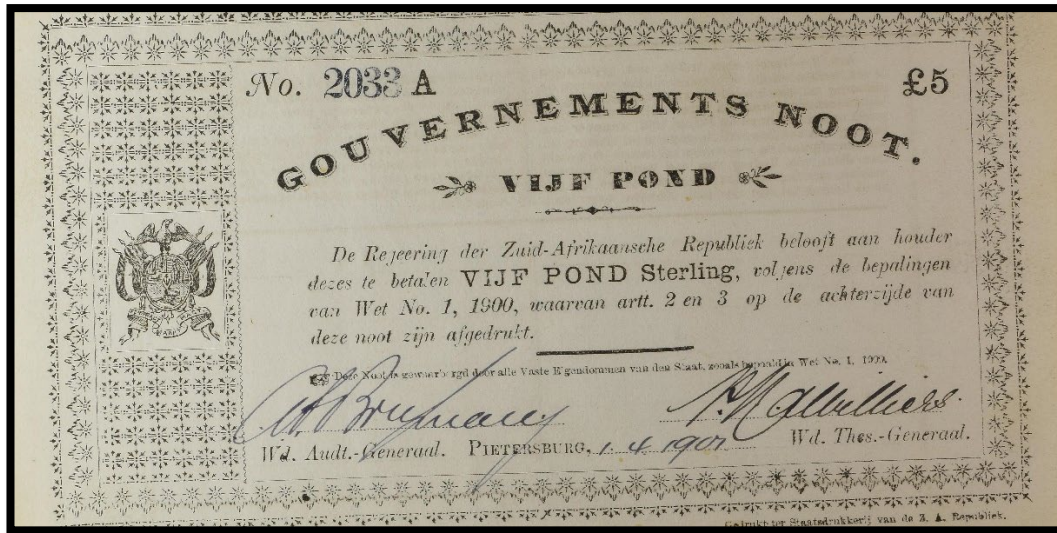 No. 2033 A £5
GOUVERNEMENTS NOOT.
VIJF POND
De Regeering der Zuid-Afrikaansche Republiek belooft aan houder
dezes te betalen VIJF POND Sterling, volgens de bepalingen
van Wet No. 1, 1900, waarvan artt. 2 en 3 op de achterzijde van
deze noot zijn afgedrukt.
Deze Noot is gewaarborgd door alle Vaste Eigendommen van den Staat, zooals bepaald in Wet No. 1, 1900.
Wd. Audt.-Generaal. PIETERSBURG, 1. 4. 1901 Wd. Thes.-Generaal.
Gedrukt ter Staatsdrukkerij van de Z. A. Republiek.